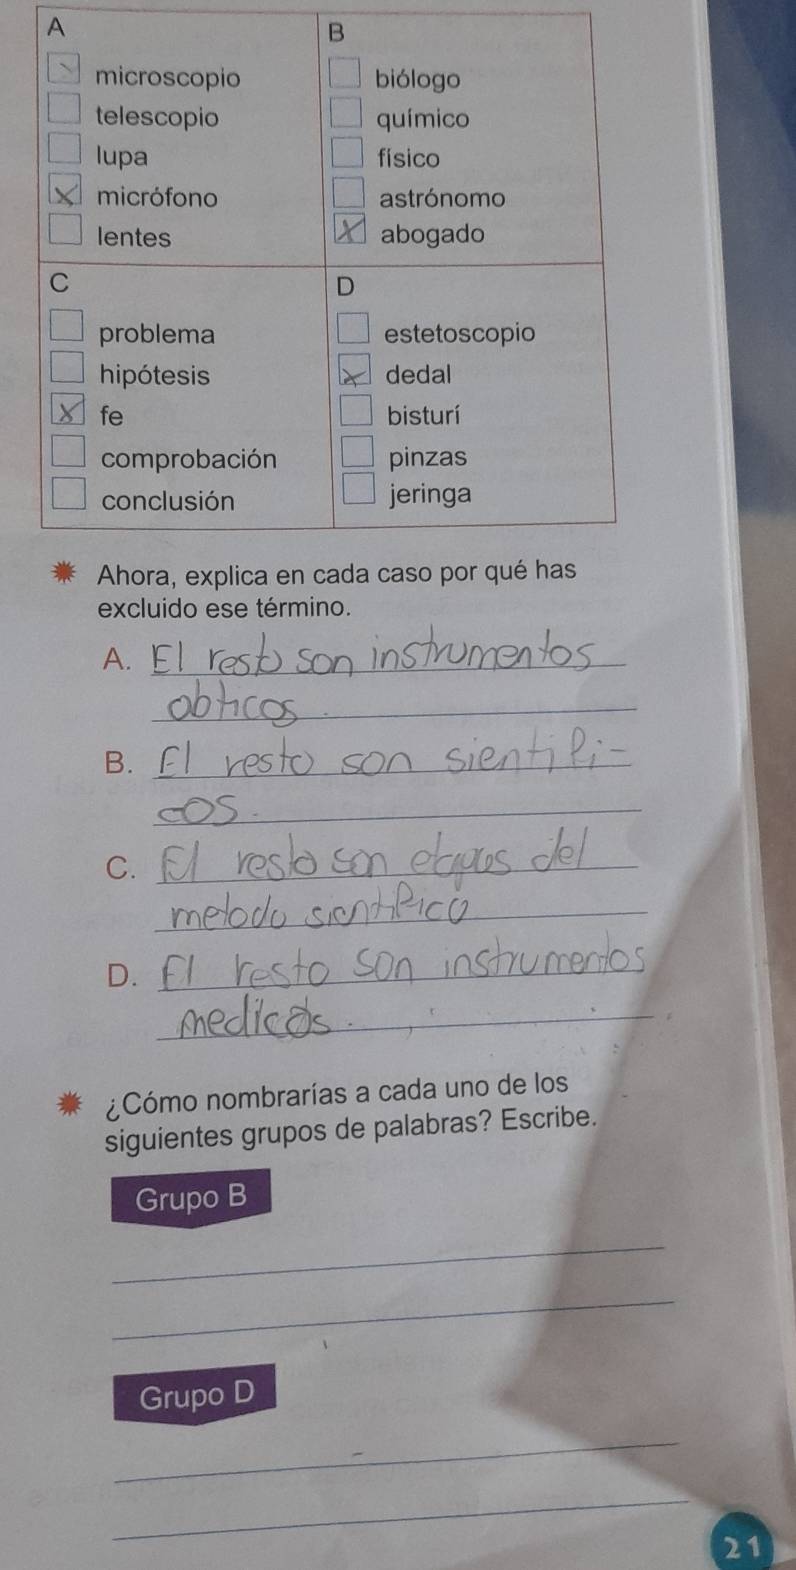 A
microscopio
telescopio
lupa
micrófono
lentes
B
biólogo
químico
físico
astrónomo
abogado
C
problema
hipótesis
fe
comprobación
conclusión
D
estetoscopio
dedal
bisturí
pinzas
jeringa
Ahora, explica en cada caso por qué has
excluido ese término.
A. El resto son instrumentos
obticos.
B. El resto son sientifi-
cos.
C. El resto son etapas del
metodo sientifico
D. El resto son instrumentos
medicos.
¿Cómo nombrarías a cada uno de los
siguientes grupos de palabras? Escribe.
Grupo B
Grupo D
21